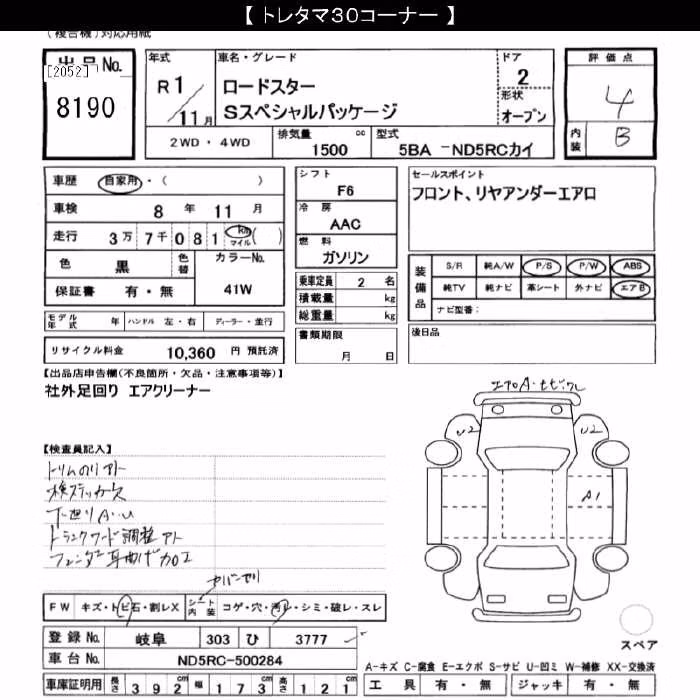 【 トレタマ30コーナー 】
(複合機)対応用紙
出品No.
[2052]
8190
年式
R 1 / 11 月
車名・グレード
ロードスター
Sスペシャルパッケージ
ドア
2
形状
オープン
評価点
4
内装
B
2WD・4WD
排気量
1500 cc
型式
5BA -ND5RCカイ
車歴 自家用・( )
車検 8 年 11 月
走行 3万 7千 0 8 1 km マイル ( )
色 黒 色替
カラーNo.
41W
保証書 有・無
シフト
F6
冷房
AAC
燃料
ガソリン
乗車定員 2 名
積載量 kg
総重量 kg
書類期限
月 日
セールスポイント
フロント、リヤアンダーエアロ
装備品
S/R 純A/W P/S P/W ABS
純TV 純ナビ 革シート 外ナビ エアB
ナビ型番:
後日品
モデル年式 年 ハンドル 左・右 ディーラー・並行
リサイクル料金 10,360 円 預託済
【出品店申告欄(不良箇所・欠品・注意事項等)】
社外足回り エアクリーナー
【検査員記入】
トリムのりアト
検ステッカー欠
下廻りA・U
トランクフード調整アト
フェンダー耳曲げ加工
エアロA・ヒビ・ワレ
U2
U2
A1
FW キズ・トビ石・割レX シート内装 コゲ・穴・汚レ・シミ・破レ・スレ
登録No. 岐阜 303 ひ 3777
車台No. ND5RC-500284
車庫証明用 長さ 3 9 2 cm 幅 1 7 3 cm 高さ 1 2 1 cm
スペア
A-キズ C-腐食 E-エクボ S-サビ U-凹ミ W-補修 XX-交換済
工具 有・無 ジャッキ 有・無